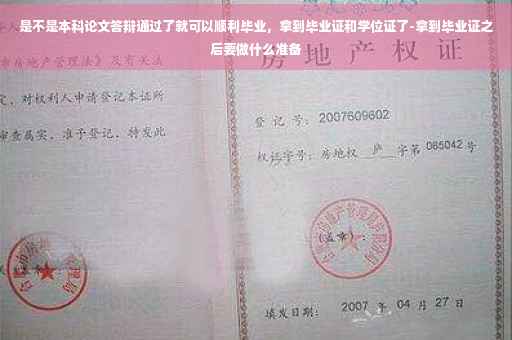 是不是本科论文答辩通过了就可以顺利毕业，拿到毕业证和学位证了-拿到毕业证之
后要做什么准备
房地产权
市房地产管理法》及有关法
定，对权利人申请登记本证所
审查属实，准予登记，特发此
登记号：2007609602
权证字号：房地权 庐 字第 065042 号
（盖章）：
填发日期：2007 年 04 月 27 日